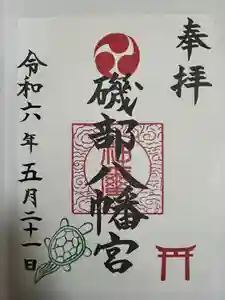 奉拝
磯部八幡宮
令和六年五月二十一日